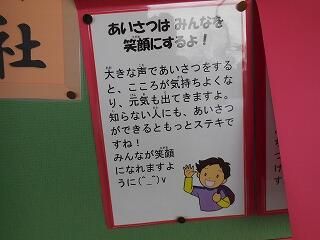 社
あいさつは みんなを
笑顔にするよ！
大きな声であいさつをする
と、こころが気持ちよくな
り、元気も出てきますよ。
知らない人にも、あいさつ
ができるともっとステキで
すね！
みんなが笑顔
になれますよ
うに(^_^)v